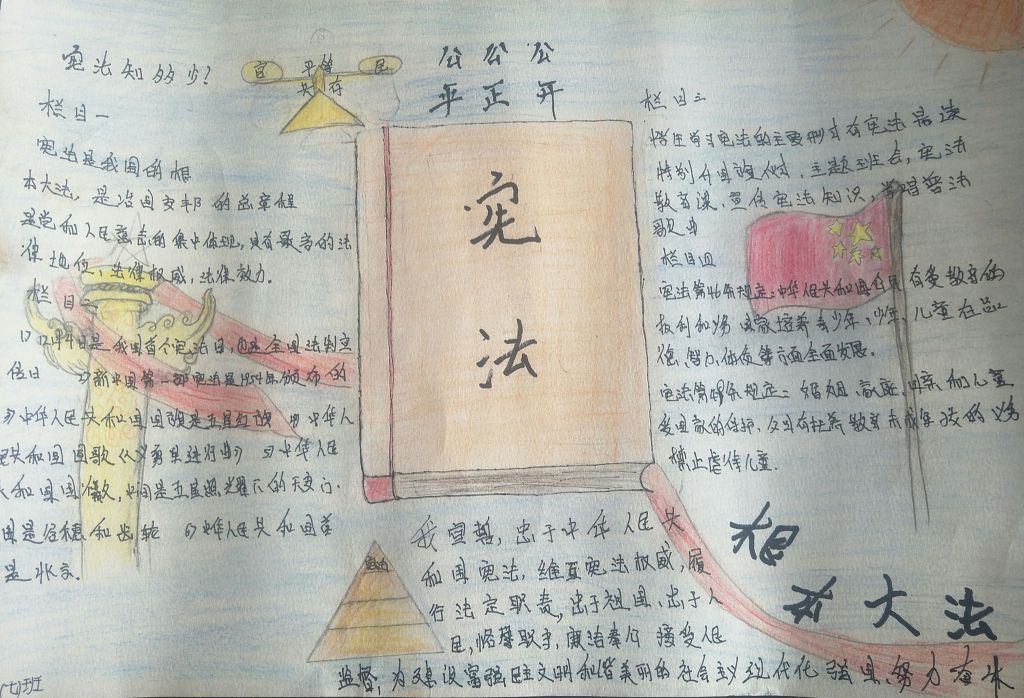 宪法知多少?
官 平等 民
共存
公公公
平正开
栏目一
宪法是我国的根
本大法，是治国安邦的总章程
是党和人民意志的集中体现，具有最高的法
律地位，法律权威，法律效力。
栏目二
12月4日是我国首个宪法日，也是全国法制宣
传日 新中国第一部宪法是1954年颁布的
中华人民共和国国旗是五星红旗 中华人
民共和国国歌《义勇军进行曲》 中华人民
共和国国徽，中间是五星照耀下的天安门，
周是谷穗和齿轮 中华人民共和国首
是北京。
宪
法
栏目三
学生学习宪法的主要形式有宪法晨读
特别升国旗仪式，主题班会，宪法
教育课，宣传宪法知识，学唱普法
歌曲
栏目四
宪法第46条规定：中华人民共和国公民有受教育的
权利和义务 国家培养青少年、少年、儿童在品
德、智力、体质等方面全面发展。
宪法第49条规定：婚姻、家庭、母亲和儿童
受国家的保护，父母有抚养教育未成年孩的义务
禁止虐待儿童.
宪法
我宣誓，忠于中华人民共
和国宪法，维护宪法权威，履
行法定职责，忠于祖国、忠于人
民，恪尽职守，廉洁奉公 接受人民
监督，为建设富强民主文明和谐美丽的社会主义现代化强国努力奋斗
根
本大法
(七)班